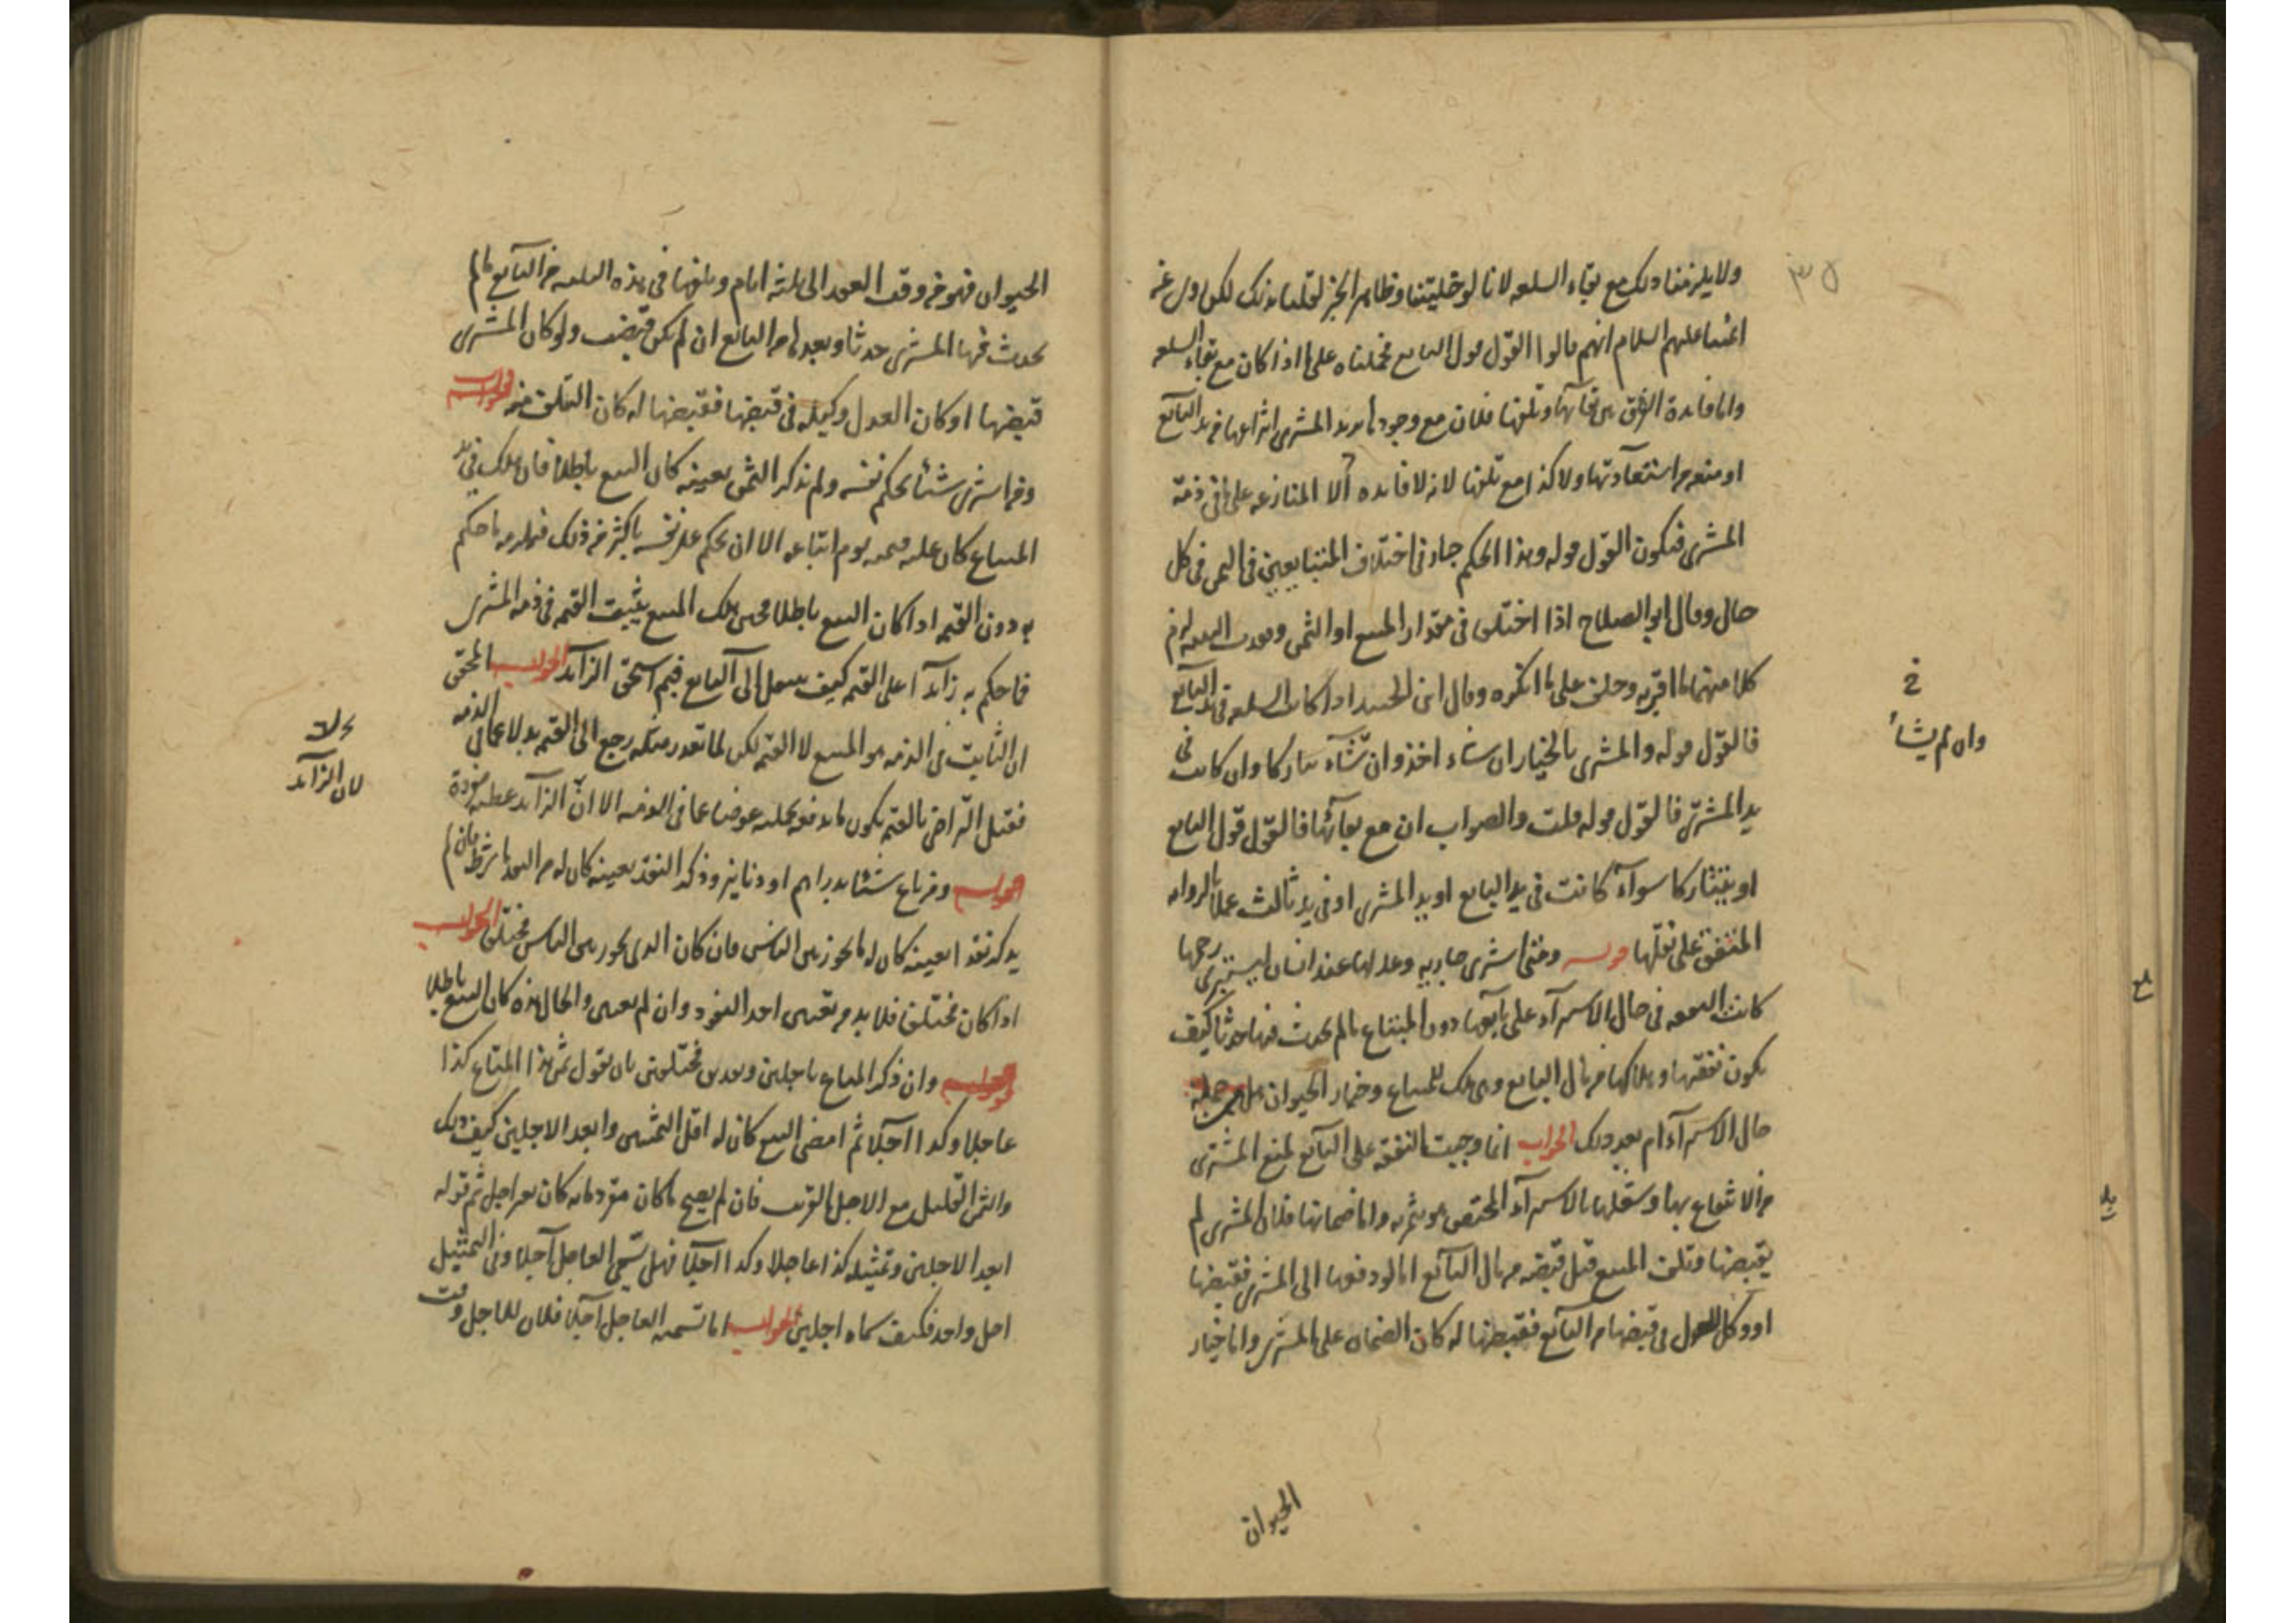 ولا يلزمنا ذلك مع بقاء السلعه لانا لو خليتنا وظاهر الخبر لقلنا بذلك لكن روى عن
ائمتنا عليهم السلام انهم قالوا القول قول البايع فحملناه على ما اذا كان مع بقاء السلعه
واما فايدة الفرق بين بقآئها وتلفها فلان مع وجودها يريد المشترى انتزاعها من يد البآئع
او منعه من استعآدتها ولا كذا مع تلفها لانه لا فايده الا المنازعه على ما فى ذمة
المشترى فيكون القول قوله وهذا الحكم جار فى اختلاف المتبايعين فى الثمن فى كل
حال وقال ابو الصلاح اذا اختلفا فى مقدار المبيع او الثمن وفقدت البينه لزم
كلا منهما ما اقر به وحلف على ما انكره وقال ابن الجنيد اذا كانت السلعه فى يد البآئع
فالقول قوله والمشترى بالخيار ان شاء اخذ وان شآء تتاركا وان كانت فى
يد المشترى فالقول قوله قلت والصواب ان مع بقآئها فالقول قول البايع
او يتتاركا سوآء كانت فى يد البايع او يد المشترى او فى يد ثالث عملا بالروايه
المتفق على نقلها قوله ومتى اشترى جاريه وعدلها عند انسان ليستبرئ رحمها
كانت النفقه فى حال الاستبرآء على بآيعها دون المبتاع ما لم يحدث فيها حدثا كيف
يكون نفقتها وهلاكها من مال البايع وهى ملك للمبتاع وخيار الحيوان هل من جملة
حال الاستبرآء ام بعد ذلك الجواب انما وجبت النفقه على البآئع لمنع المشترى
من الانتفاع بها وشغلها بالاستبرآء المختص هو بثمرته واما ضمانها فلان المشترى لم
يقبضها وتلف المبيع قبل قبضه من مال البآئع اما لو دفعها الى المشترى فقبضها
او وكل العدل فى قبضها من البآئع فقبضها له كان الضمان على المشترى واما خيار
الحيوان
خ
وان لم يشأ
٣٥
الحيوان فهو من وقت العقد الى ثلثه ايام وتلفها فى هذه المده من البآيع ما لم
يحدث فيها المشترى حدثا وبعدها من البائع ان لم يكن قبضت ولو كان المشترى
قبضها او كان العدل وكيله فى قبضها فقبضها له كان التلف منه قوله
ومن اشترى شيئا بحكم نفسه ولم يذكر الثمن بعينه كان البيع باطلا فان هلك فى يد
المبتاع كان عليه قيمته يوم ابتاعه الا ان يحكم على نفسه باكثر من ذلك فيلزمه ما حكم
به دون القيمه اذا كان البيع باطلا فحين هلك المبيع يثبت القيمه فى ذمه المشترى
فما حكم به زآئدا على القيمه كيف ينتقل الى البآيع فبم استحق الزآئد الجواب المحقق
ان الثابت فى الذمه هو المبيع لا القيمه لكن لما تعذر مثله رجع الى القيمه بدلا عما فى الذمه
فقبل التراضى بالقيمه يكون ما يدفعه بحكمه عوضا عما فى الذمه الا ان الزآئد عطيه مفردة
قوله ومن باع شيئا بدراهم او دنانير وذكر النقد بعينه كان له من النقد ما شرط فان لم
يذكر نقدا بعينه كان له ما يجوز بين الناس فان كان الذى يجوز بين الناس مختلفا الجواب
اذا كان مختلفا فلا بد من تعيين احد النقود وان لم يعين والحال هذه كان البيع باطلا
قوله وان ذكر المتاع باجلين ونقدين مختلفين بان يقول ثمن هذا المتاع كذا
عاجلا وكذا آجلا ثم امضى البيع كان له اقل الثمنين وابعد الاجلين كيف ذلك
والثمن القليل مع الاجل القريب فان لم يصح ما كان مترددا به كان بغير اجل ثم قوله
ابعد الاجلين وتمثيله كذا عاجلا وكذا آجلا فهل سمى العاجل آجلا وفى التمثيل
اجل واحد فكيف سماه اجلين الجواب اما تسميه العاجل آجلا فلان للعاجل وقت
لان الزآئد